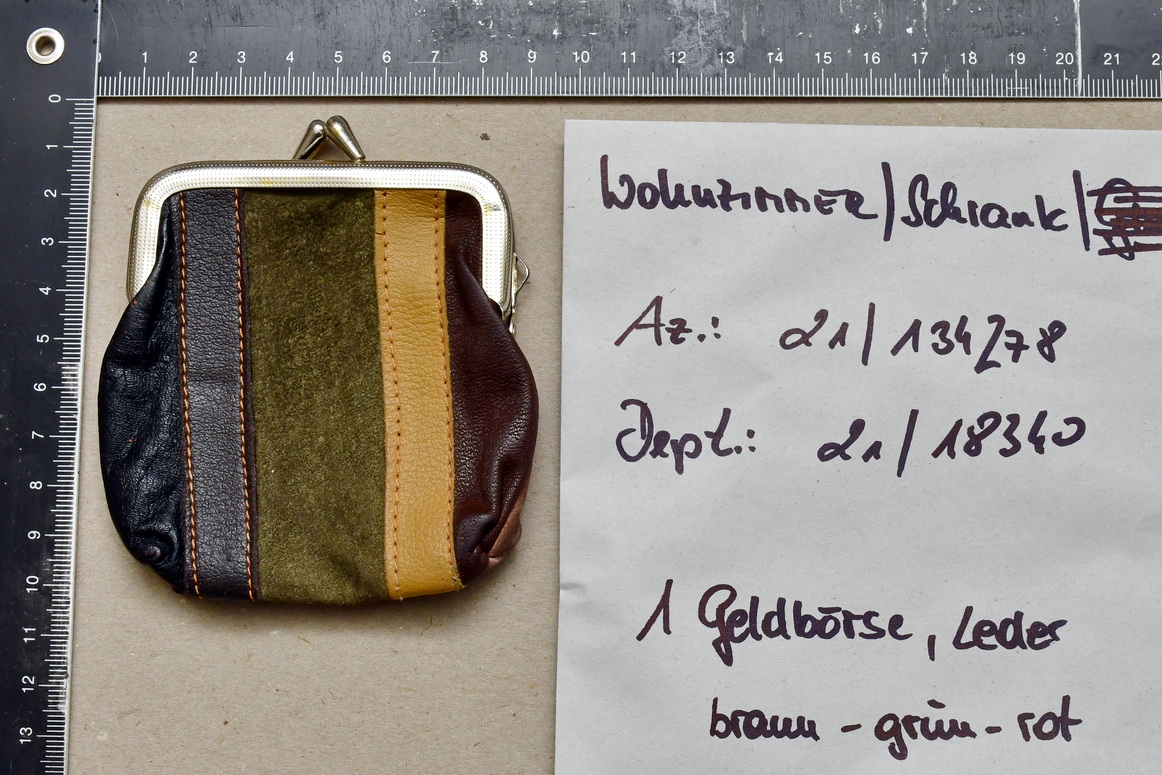 0 1 2 3 4 5 6 7 8 9 10 11 12 13 14 15 16 17 18 19 20 21
0
1
2
3
4
5
6
7
8
9
10
11
12
13
Wohnzimmer/Schrank/
Az.: 21/134278
Dept.: 21/18340
1 Geldbörse, Leder
braun - grün - rot